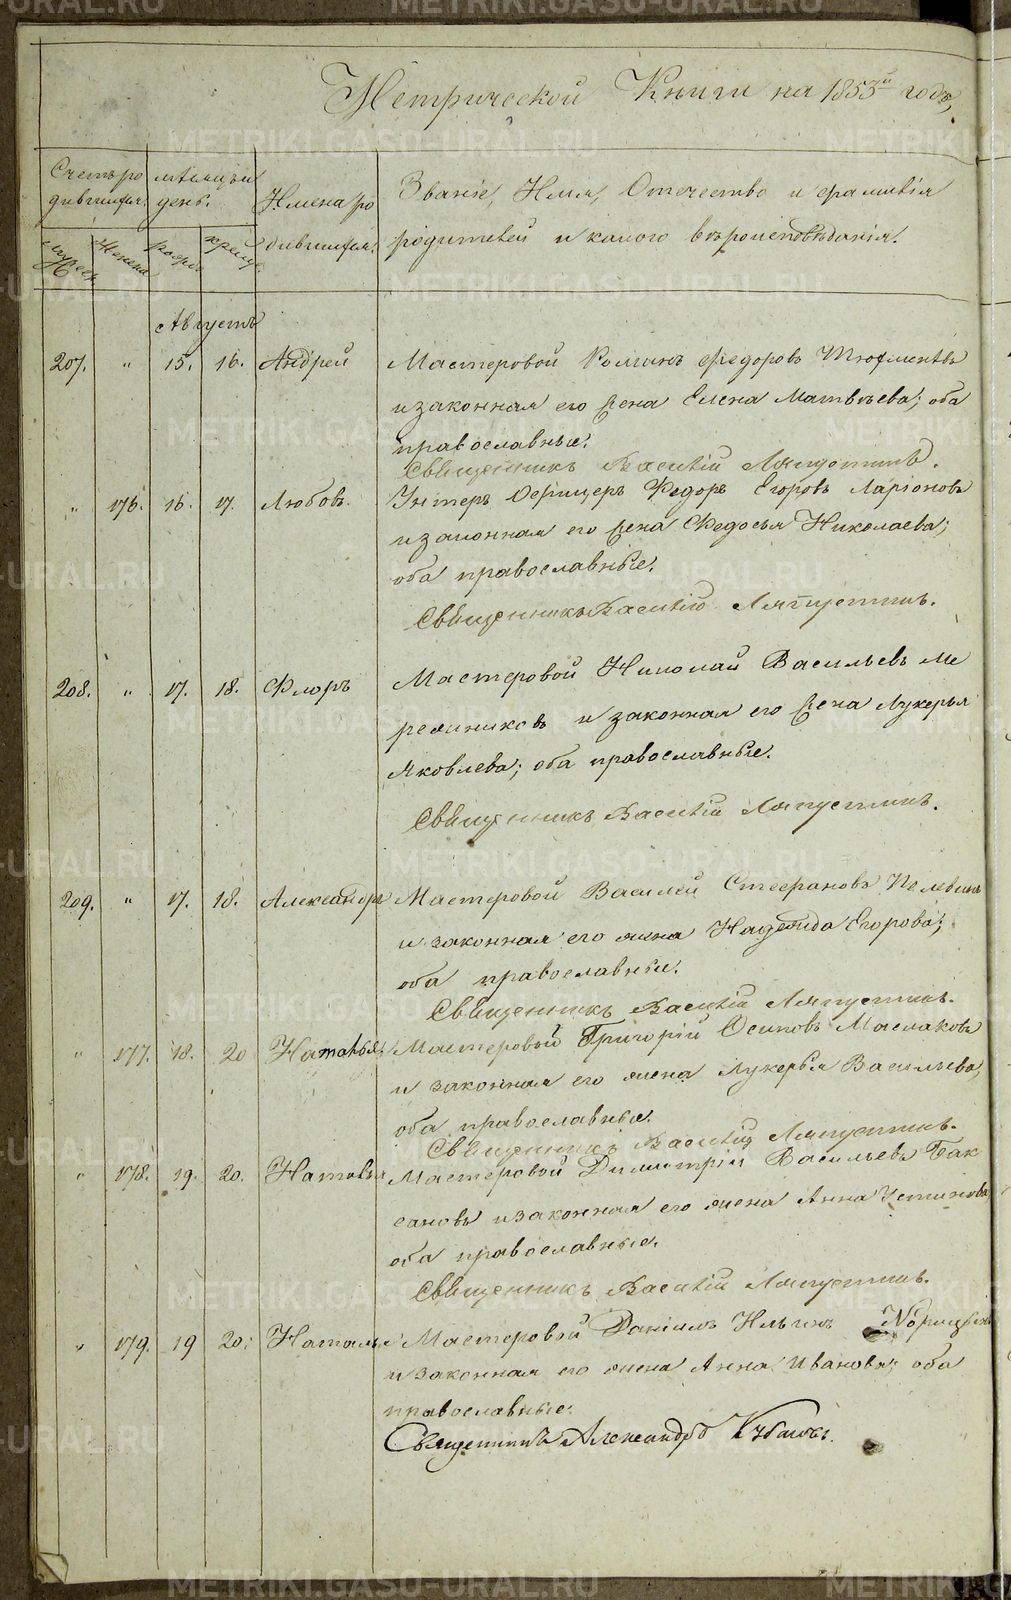 METRIKI.GASO-URAL.RU
Метрической Книги на 1855й годъ,
Счетъ ро дившихся.
Мѣсяцъ и день.
Имена ро дившихся.
Званіе, Имя, Отечество и фамилія
родителей и какого вѣроисповѣданія.
Женска
Августъ
207. " 15. 16. Андрей Мастеровой Романъ Федоровъ
и законная его жена Елена Матвѣева; оба
православные.
Священникъ Василій Ляпустинъ.
" 176. 16. 17. Любовь. Унтеръ Офицеръ Федоръ Егоровъ Ларіоновъ
и законная его жена Федосья Николаева;
оба православные.
Священникъ Василій Ляпустинъ.
208. " 17. 18. Флоръ Мастеровой Николай Васильевъ Ме
и законная его жена Лукерья
Яковлева; оба православные.
Священникъ Василій Ляпустинъ.
209. " 17. 18. Александръ Мастеровой Василей Стефановъ Пелевинъ
и законная его жена Надежда Егорова;
оба православные.
Священникъ Василій Ляпустинъ.
" 177. 18. 20 Наталья Мастеровый Григорій Осиповъ Маслаковъ
и законная его жена Лукерья Васильева,
оба православные.
Священникъ Василій Ляпустинъ.
" 178. 19. 20. Наталья Мастеровой Димитрій Васильевъ Бак
сановъ и законная его жена Анна Устинова
оба православные.
Священникъ Василій Ляпустинъ.
" 179. 19 20. Наталья Мастеровой Даніилъ Ильинъ
и законная его жена Анна Иванова; оба
православные.
Священникъ Александръ